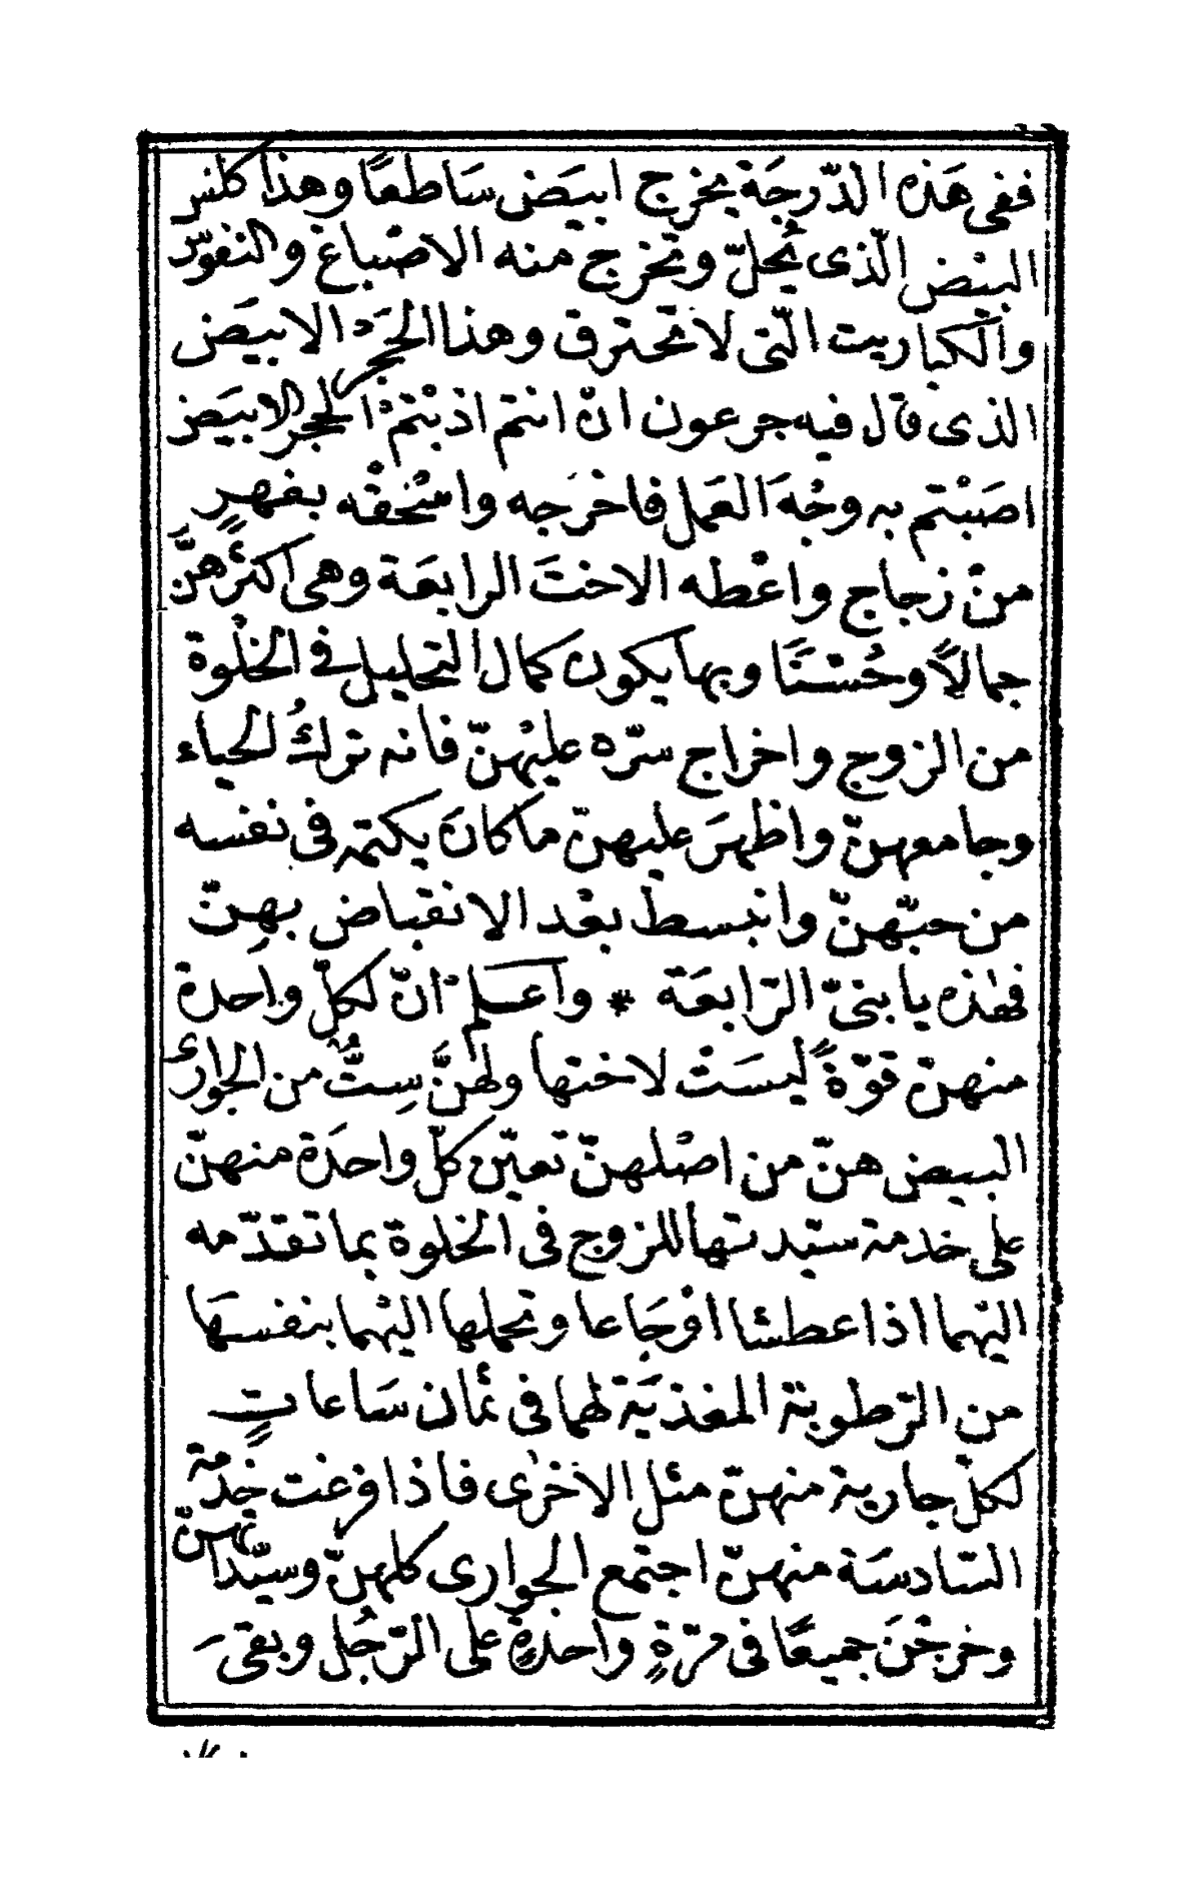 ففى هَذه الدّرجَة يخرج ابيَض سَاطعًا وهذا كلس
البيْض الّذى يُحلّ وتخرج منه الاصْباغ والنفوّر
والكباريت الّتى لا تحترق وهذا الحجَر الابيَض
الذى قال فيه جرعون انّ انتم اذبْتمْ الحجر الابيَض
اصَبْتم به وجْهَ العَمل فاخرَجه واسْحَقْه بفهرٍ
منْ زجاج واعْطه الاختَ الرابعَة وهى اكثرُهنَّ
جمالاً وحُسْنًا وبها يكون كمال التحليل فى الخلْوة
من الزوج واخراج سرّه عليْهنّ فانه تركُ الحياء
وجامعهنّ واظهرَ عليهنّ ما كانَ يكتمه فى نفسه
من حبّهنّ وانبسط بعْد الانقباض بهِنّ
فهٰذه يا بنىّ الرّابعَة * واعلم انّ لكلّ واحدة
منهنّ قوّةً ليسَتْ لاختها ولهنَّ سِتٌّ من الجوارى
البيض هنّ من اصْلهنّ تعيّن كلّ واحدَة منهنّ
على خدمة سيّدتها للزوج فى الخلوة بما تقدّمه
اليْهما اذا عطشا اوْجَاعا وتحملها اليْهما بنفسهَا
من الرّطوبة المغذيَة لهما فى ثمان سَاعاتٍ
لكلّ جارية منهنّ مثل الاخرٰى فاذا فرغت خدمة
السّادسَة منهنّ اجتمع الجوارى كلهنّ وسيّداتهنّ
وخرجْنَ جميعًا فى مرّةٍ واحدةٍ على الرّجُل وبقىَ